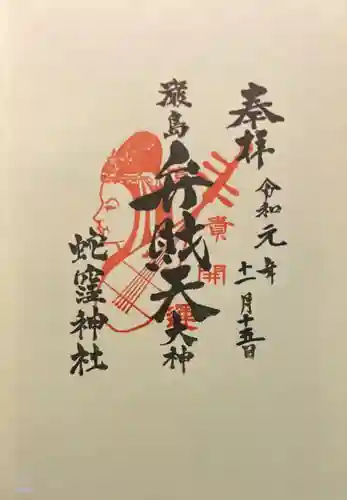 奉拝
令和元年
十一月十五日
厳島
弁財天
大神
貴
開運
蛇窪神社